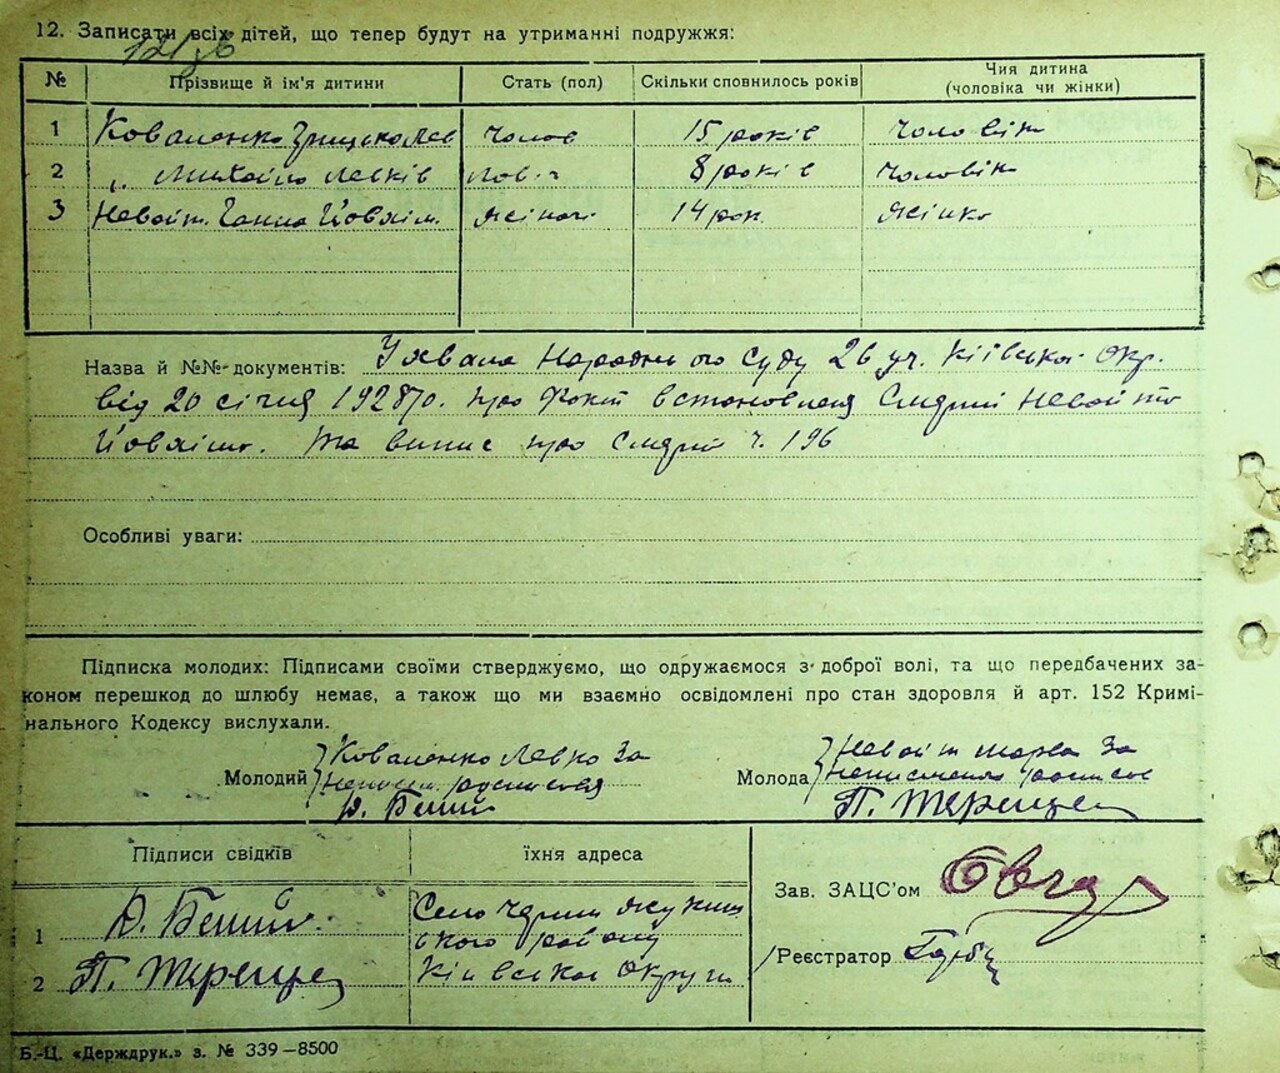 12. Записати всіх дітей, що тепер будут на утриманні подружжя:
№ Прізвище й ім'я дитини Стать (пол) Скільки сповнилось років Чия дитина (чоловіка чи жінки)
1 Коваленко Грицько Лев чолов 15 років чоловік
2 „ Михайло Левків 8 років чоловік
3 Невойт. Ганна Йовхім. жіноч. 14 рок. жінко
Назва й №№ документів: Ухвала Народнього Суду 26 уч. Київсько. Окр.
від 20 січня 1928 р. про факт встановленя Смерти Невойта
Йовхима. та випис про Смерть ч. 196
Особливі уваги:
Підписка молодих: Підписами своїми стверджуємо, що одружаємося з доброї волі, та що передбачених за-
коном перешкод до шлюбу немає, а також що ми взаємно освідомлені про стан здоровля й арт. 152 Кримі-
нального Кодексу вислухали.
Молодий Коваленко Левко За
неписьм. росписався
Молода Невойт Марва За
неписьменну росписався
П. Терещен
Підписи свідків їхня адреса
1
2 П. Терещен
Село
ського району
Київської Округи
Зав. ЗАЦС'ом
Реєстратор
Б.-Ц. «Держдрук.» з. № 339—8500